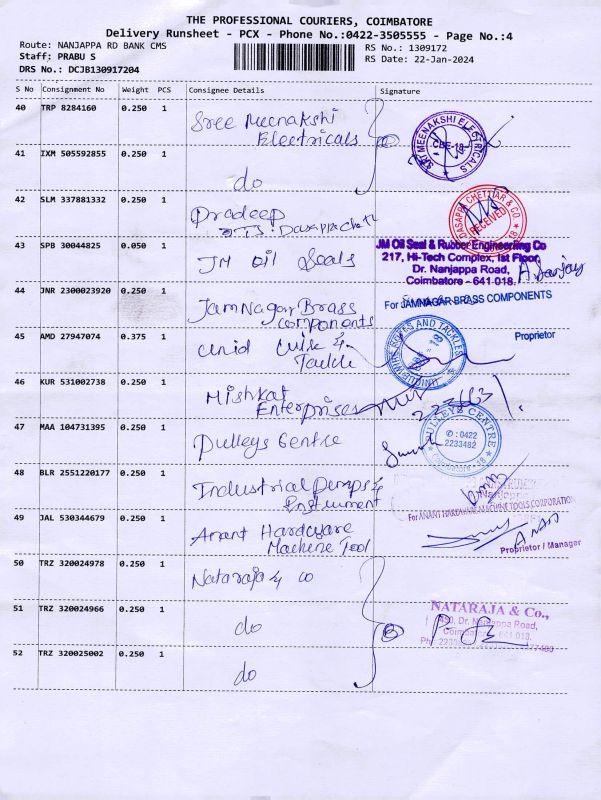 THE PROFESSIONAL COURIERS, COIMBATORE
Delivery Runsheet - PCX - Phone No.:0422-3505555 - Page No.:4
Route: NANJAPPA RD BANK CMS
RS No.: 1309172
Staff: PRABU S
RS Date: 22-Jan-2024
DRS No.: DCJB130917204
S No Consignment No Weight PCS Consignee Details Signature
40 TRP 8284160 0.250 1 Sree Meenakshi
Electricals
SRI MEENAKSHI ELECTRICALS
CBE-18
41 IXM 505592855 0.250 1
do
42 SLM 337881332 0.250 1 Pradeep
DASAPPA CHETTIAR & CO
RECEIVED
43 SPB 30044825 0.050 1 JM Oil Seals
JM Oil Seal & Rubber Engineering Co
217, Hi-Tech Complex, Ist Floor,
Dr. Nanjappa Road,
Coimbatore - 641 018.
44 JNR 2300023920 0.250 1 JamNagar Brass
Components
For JAMNAGAR BRASS COMPONENTS
Proprietor
45 AMD 27947074 0.375 1
WIRE ROPES AND TACKLES
46 KUR 531002738 0.250 1 Mishkat
Enterprises
47 MAA 104731395 0.250 1 Pulleys Centre
PULLEYS CENTRE
✆ : 0422
2233482
48 BLR 2551220177 0.250 1 Industrial Pumps &
Instrument
49 JAL 530344679 0.250 1 Anant Hardware
Machine Tool
For ANANT HARDWARE MACHINE TOOLS CORPORATION
Proprietor / Manager
50 TRZ 320024978 0.250 1 Nataraja & co
51 TRZ 320024966 0.250 1
do
NATARAJA & Co.,
450, Dr. Nanjappa Road,
Coimbatore - 641 018.
52 TRZ 320025002 0.250 1
do